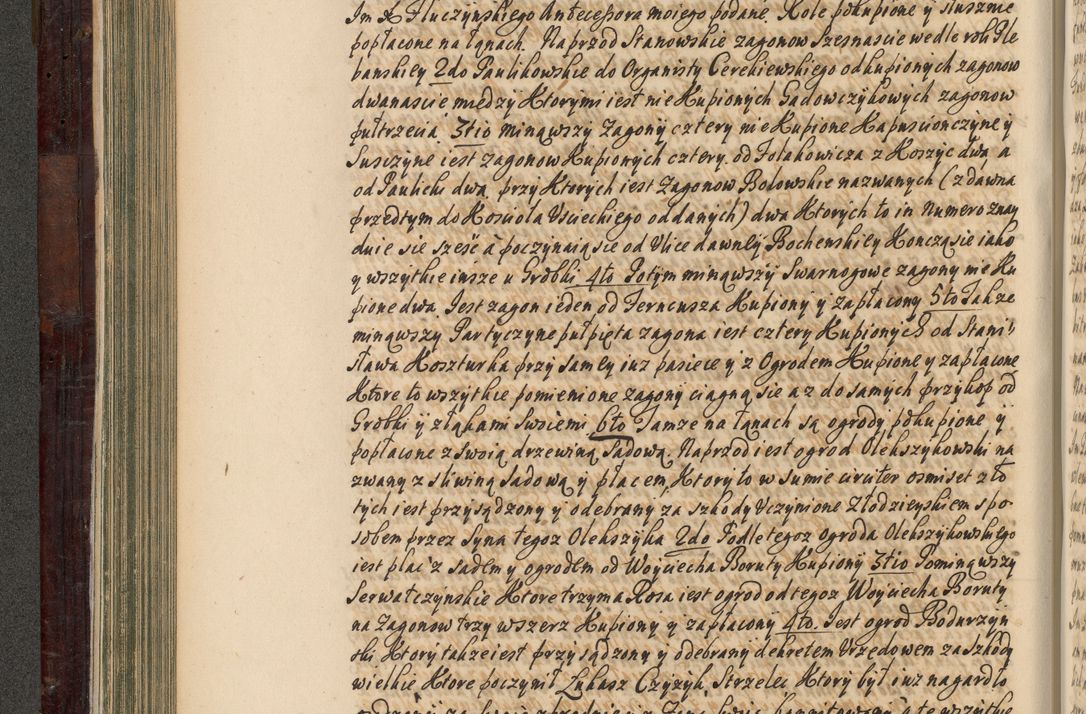 Jm X Tłuczynskiego Antecessora moiego podane, Role pokupione y słusznie
popłacone na łąnach. Naprzod Stanowskie zagonow szesnascie wedle roli Ple
banskiey 2do Paulikowskie do Organisty Cerekiewskiego odkupionych zagonow
dwanascie między Ktorymi iest nie Kupionych Gadowczykowych zagonow
pułtrzecia 3tio minąwszy Zagony cztery nie Kupione Kapuscionczyne y
Susczyne iest zagonow Kupionych cztery. od Polakowicza z Koszyc dwa a
od Paulicki dwa przy Ktorych iest Zagonow Bolowskie nazwanych (z dawna
przedtym do Kosciola Usciechiego oddanych) dwa Ktorych to in Numero znay
duie sie szesć a poczynaią sie od Ulice dawney Bochenskiey Kończą sie iako
y wszytkie insze u Grobki 4to Potym minąwszy Swarnogowe zagony nie Ku
pione dwa Jest zagon ieden od Ferneusza Kupiony y zapłacony 5to Takze
minąwszy Partyczyne pułpięta zagona iest cztery Kupionych od Stani
sława Koszturka przy samey iuz pasiece y z Ogrodem Kupione y zapłacone
Ktore to wszytkie pomienione zagony ciągną sie az do samych przykop od
Grobki y złąkami swoiemi 6to Tamze na łąnach są ogrody pokupione y
popłacone z swoią drzewiną Sadową. Naprzod iest ogrod Olekszykowski na
zwany z sliwiną sadową y placem, Ktory to w sumie circiter osmiset zło
tych iest przysądzony y odebrany za szkody Uczynione Złodzieyskiem spo-
sobem przez Syna tegoz Olekszyka 2do Podle tegoz ogroda Olekszykowskiego
iest plac z sadem y ogrodem od Woyciecha Boruty Kupiony 3tio Pominąwszy
Serwatczynskie Ktore trzyma Rosa iest ogrod od tegoz Woyciecha Boruty
na Zagonow trzy wszerz Kupiony y zapłacony 4to. Jest ogrod Bodurzyn
ski Ktory takze iest przysądzony y odebrany dekretem Urzędowem za szkody
wielkie Ktore poczynił Łukasz Czyzyk, Strzelec Ktory był iuz na gardło